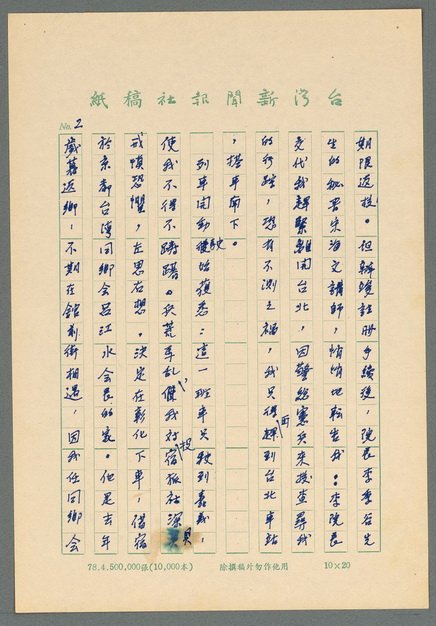 紙稿社報聞新湾台
No. 2
期限返校。但辦竣註册手續後，院長李季谷先
生的秘書宋海文講師，悄悄地転告我：李院長
交代我趕緊離開台北，因警総憲兵來搜查尋我
的行踪，恐有不測之禍，我只得趕到台北車站
，搭車南下。
列車開動後始獲悉：這一班車只駛到嘉義，
使我不得不躊躇。兵荒車乱，使我対投宿旅社深
戒慎恐懼，左思右想。決定在彰化下車，借宿
於京都台湾同鄉会呂江水会長的家。他是去年
歲暮返鄉，不期在館前街相遇，因我任同鄉会
78.4.500,000張(10,000本)
除撰稿外勿作他用
10×20